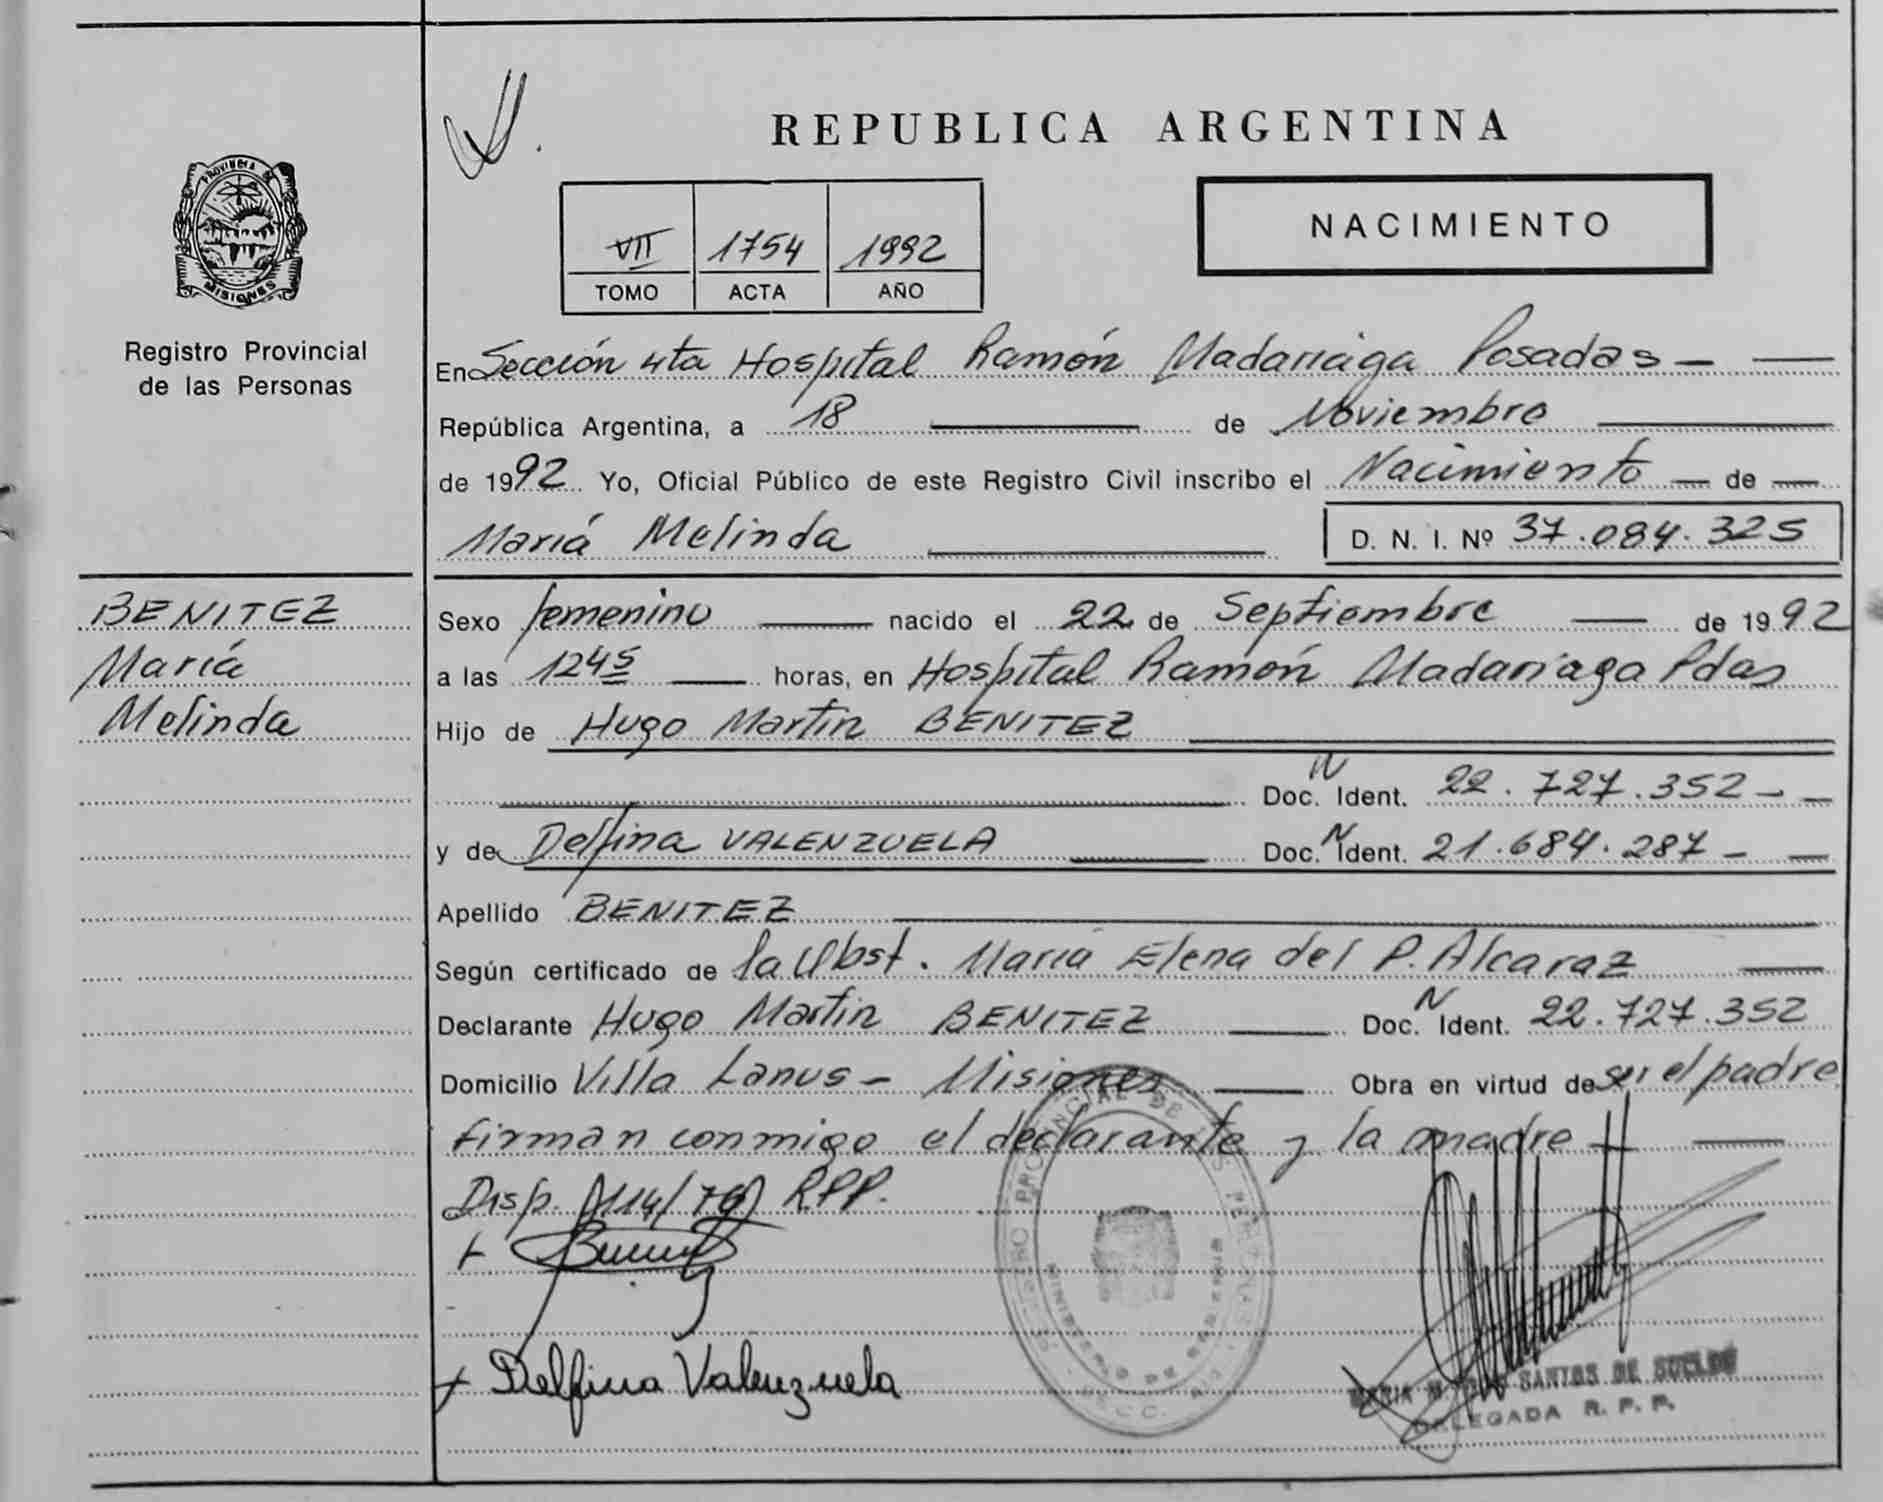 REPUBLICA ARGENTINA
PROVINCIA DE
MISIONES
Registro Provincial
de las Personas
VII 1754 1992
TOMO ACTA AÑO
NACIMIENTO
En Sección 4ta Hospital Ramón Madariaga Posadas —
República Argentina, a 18 de Noviembre
de 1992 Yo, Oficial Público de este Registro Civil inscribo el Nacimiento — de —
María Melinda D. N. I. Nº 37.084.325
BENITEZ
María
Melinda
Sexo femenino nacido el 22 de Septiembre de 1992
a las 1245 horas, en Hospital Ramón Madariaga Pdas
Hijo de Hugo Martin BENITEZ
Doc. N Ident. 22.727.352 —
y de Delfina VALENZUELA Doc. N Ident. 21.684.287 —
Apellido BENITEZ
Según certificado de la Obst. María Elena del P. Alcaraz
Declarante Hugo Martin BENITEZ Doc. N Ident. 22.727.352
Domicilio Villa Lanus — Misiones Obra en virtud de ser el padre
firman conmigo el declarante y la madre
Disp. 114/76 RPP.
Delfina Valenzuela
SANTOS DE SUELDO
DELEGADA R. P. P.